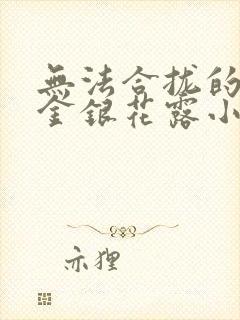 無法合拢的
金銀花露小
亦狸